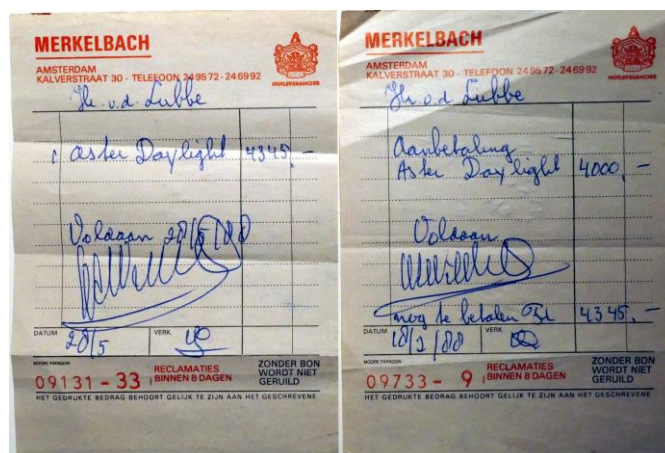 MERKELBACH
AMSTERDAM
KALVERSTRAAT 30 - TELEFOON 249572 - 246992
HOFLEVERANCIER
Hr. v.d. Lubbe
1 Aster Daylight 4345,-
Voldaan 28/5/88
DATUM 28/5 VERK.
MOORE PARAGON
09131 - 33
RECLAMATIES
BINNEN 8 DAGEN
ZONDER BON
WORDT NIET
GERUILD
HET GEDRUKTE BEDRAG BEHOORT GELIJK TE ZIJN AAN HET GESCHREVENE
MERKELBACH
AMSTERDAM
KALVERSTRAAT 30 - TELEFOON 249572 - 246992
HOFLEVERANCIER
Hr. v.d. Lubbe
Aanbetaling
Aster Daylight 4000,-
Voldaan
nog te betalen 4345,-
DATUM 18/3/88 VERK.
MOORE PARAGON
09733 - 9
RECLAMATIES
BINNEN 8 DAGEN
ZONDER BON
WORDT NIET
GERUILD
HET GEDRUKTE BEDRAG BEHOORT GELIJK TE ZIJN AAN HET GESCHREVENE